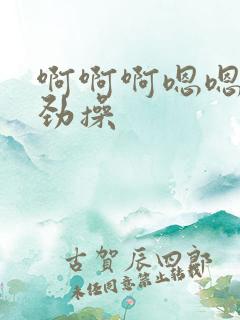 啊啊啊嗯嗯
劲操
古賀辰四郎
未经同意禁止转载